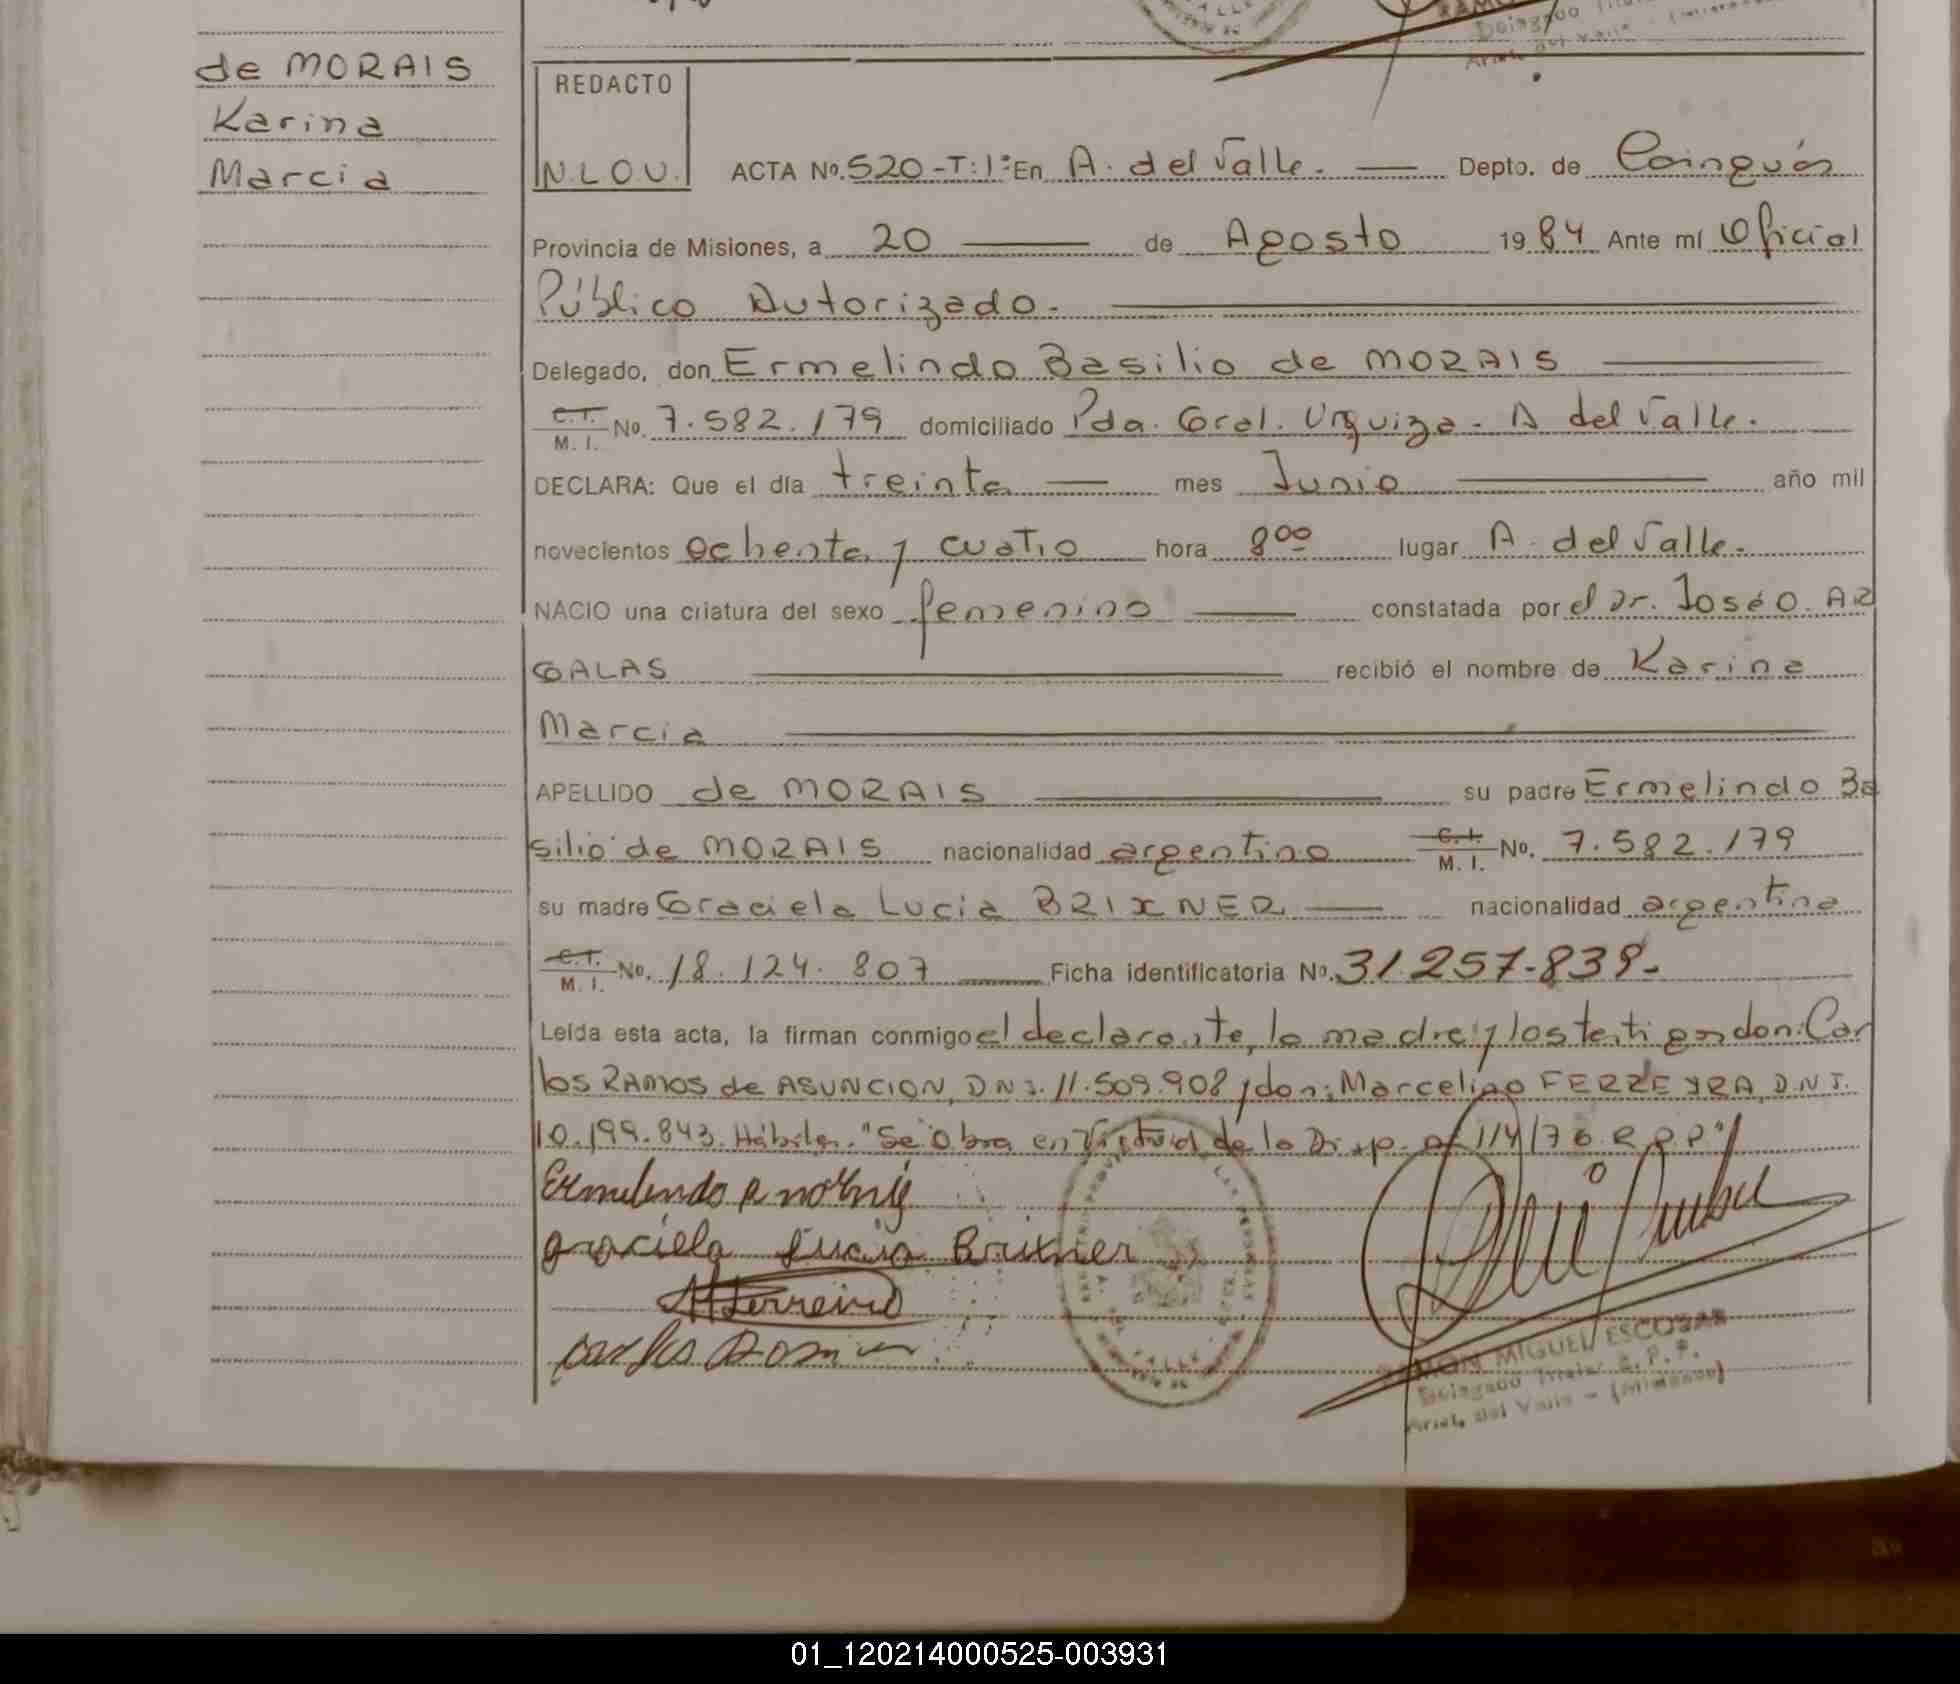 de MORAIS
Karina
Marcia
REDACTO
N.L.O.U.
ACTA Nº. 520-T:1º En A. del Valle. Depto. de Cainguás
Provincia de Misiones, a 20 de Agosto 1984 Ante mí Oficial
Público Autorizado.
Delegado, don Ermelindo Basilio de MORAIS
C.I. M. I. No. 7.582.179 domiciliado Pda. Gral. Urquiza - A del Valle.
DECLARA: Que el día treinta mes Junio año mil
novecientos ochenta y cuatro hora 8 00 lugar A. del Valle.
NACIO una criatura del sexo femenino constatada por el Dr. José O. AR
GALAS recibió el nombre de Karina
Marcia
APELLIDO de MORAIS su padre Ermelindo Ba
silio de MORAIS nacionalidad argentino C.I. M. I. No. 7.582.179
su madre Graciela Lucia BRIXNER nacionalidad argentina
C.I. M. I. No. 18.124.807 Ficha identificatoria Nº. 31.257-839-
Leída esta acta, la firman conmigo el declarante, la madre y los testigos don: Car
los RAMOS de ASUNCION, D.N.I. 11.509.908 y don: Marcelino FERREYRA, D.N.I.
10.199.843. Hábiles. "Se obra en virtud de la Disp. nº 114/76. R.P.P."
Ermelindo
graciela Lucia Brixner
Carlos
RAMON MIGUEL ESCOBAR
Delegado Titular R. P. P.
Arist. del Valle - (Misiones)
01_120214000525-003931